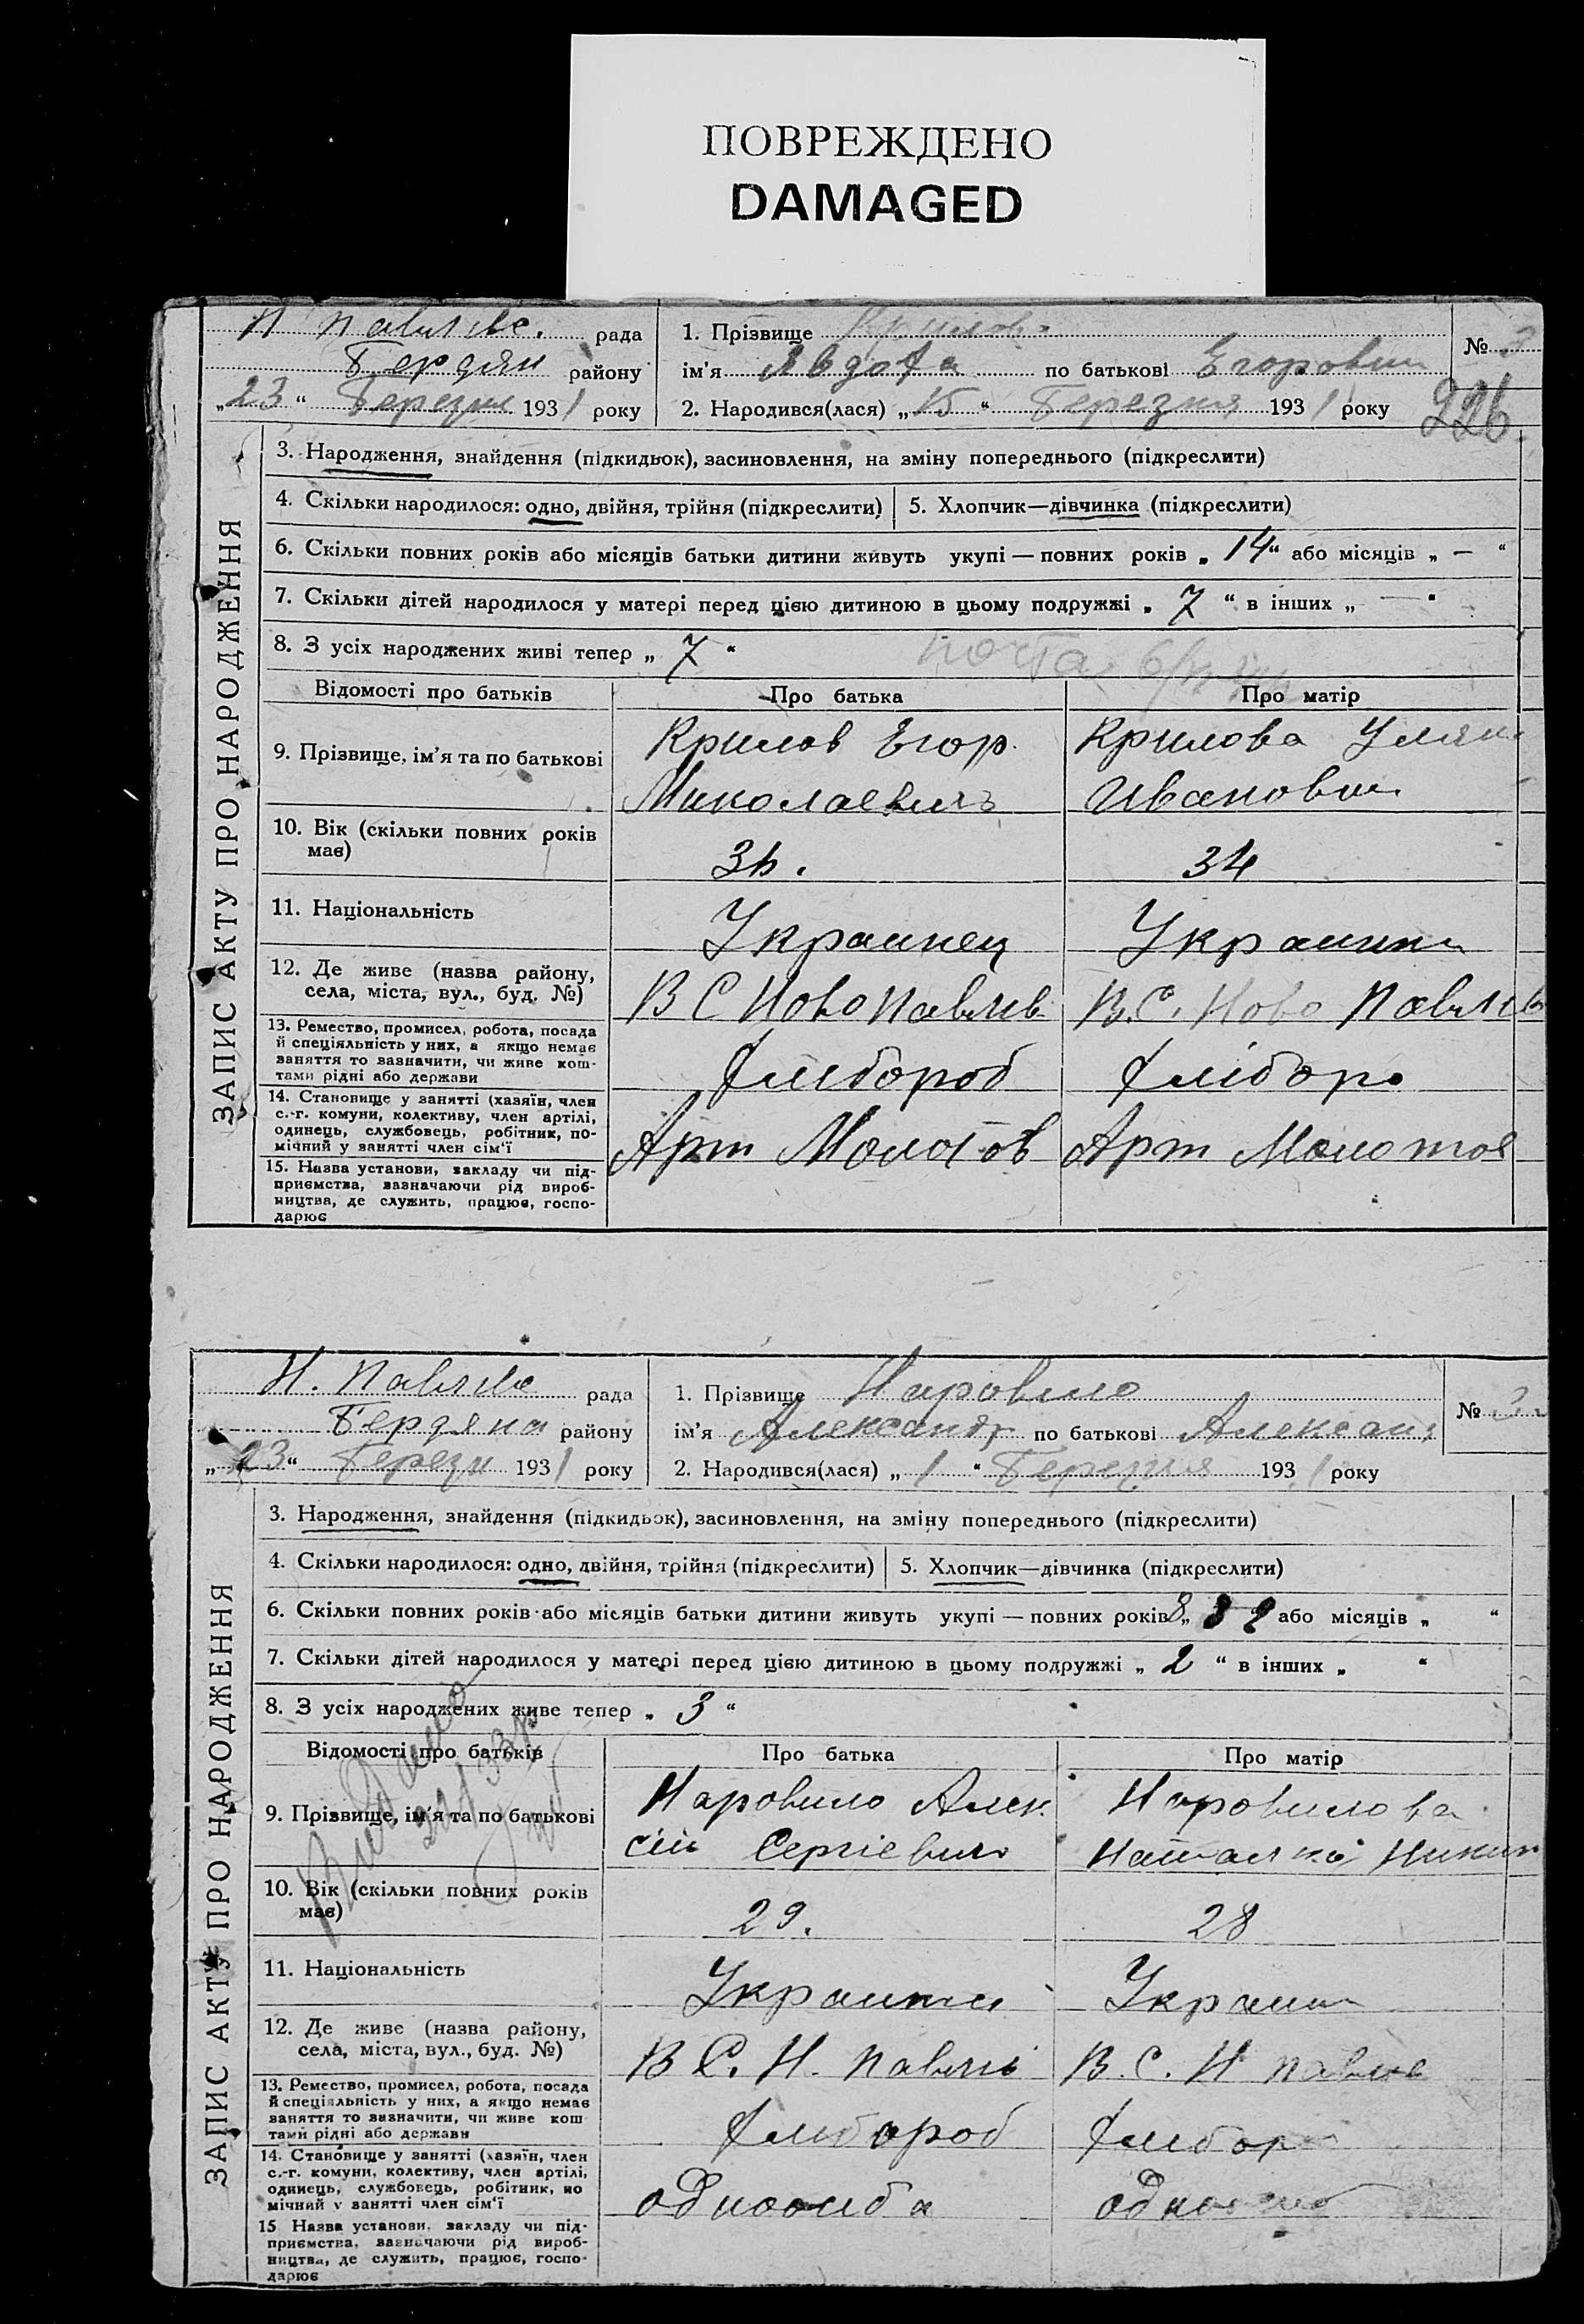 ПОВРЕЖДЕНО
DAMAGED
Н Павлівс. рада
Бердян району
„23“ Березня 1931 року
1. Прізвище Крилова
ім'я Явдоха по батькові Егоровна
2. Народився(лася) „15“ Березня 1931 року
№ 3
226
ЗАПИС АКТУ ПРО НАРОДЖЕННЯ
3. Народження, знайдення (підкидьок), засиновлення, на зміну попереднього (підкреслити)
4. Скільки народилося: одно, двійня, трійня (підкреслити) 5. Хлопчик—дівчинка (підкреслити)
6. Скільки повних років або місяців батьки дитини живуть укупі — повних років „14“ або місяців „ — “
7. Скільки дітей народилося у матері перед цією дитиною в цьому подружжі „7“ в інших „ — “
8. З усіх народжених живі тепер „7“
Відомості про батьків Про батька Про матір
9. Прізвище, ім'я та по батькові
Крилов Егор
Миколаевичъ
Крилова Уляна
Ивановна
10. Вік (скільки повних років
має)
34
11. Національність
Украинец
Украинка
12. Де живе (назва району,
села, міста, вул., буд. №)
В С Ново Павлив
В. С. Ново Павлив
13. Ремество, промисел, робота, посада
й спеціяльність у них, а якщо немає
заняття то зазначити, чи живе кош-
тами рідні або держави
Хлибороб
Хлібороб
14. Становище у занятті (хазяїн, член
с.-г. комуни, колективу, член артілі,
одинець, службовець, робітник, по-
мічний у занятті член сім'ї
Арт Молотов
Арт Молотов
15. Назва установи, закладу чи під-
приємства, зазначаючи рід вироб-
ництва, де служить, працює, госпо-
дарює
Н. Павлівс рада
Бердяна району
„23“ Березн 1931 року
1. Прізвище
ім'я Александр по батькові Алексан
2. Народився(лася) „1“ Березня 1931 року
№ 3
ЗАПИС АКТУ ПРО НАРОДЖЕННЯ
3. Народження, знайдення (підкидьок), засиновлення, на зміну попереднього (підкреслити)
4. Скільки народилося: одно, двійня, трійня (підкреслити) 5. Хлопчик—дівчинка (підкреслити)
6. Скільки повних років або місяців батьки дитини живуть укупі — повних років 8 „ “ або місяців „ “
7. Скільки дітей народилося у матері перед цією дитиною в цьому подружжі „2“ в інших „ “
8. З усіх народжених живе тепер „3“
Видано
Відомості про батьків Про батька Про матір
9. Прізвище, ім'я та по батькові
Алек
сій Сергіевич
Наталка Никит
10. Вік (скільки повних років
має)
29.
28
11. Національність
Украинец
Украин
12. Де живе (назва району,
села, міста, вул., буд. №)
В С. Н. Павлів
В. С. Н Павлів
13. Ремество, промисел, робота, посада
й спеціяльність у них, а якщо немає
заняття то зазначити, чи живе кош-
тами рідні або держави
Хлибороб
Хлибор
14. Становище у занятті (хазяїн, член
с.-г. комуни, колективу, член артілі,
одинець, службовець, робітник, по
мічний у занятті член сім'ї
одноосиба
15 Назва установи, закладу чи під-
приємства, зазначаючи рід вироб-
ництва, де служить, працює, госпо-
дарює